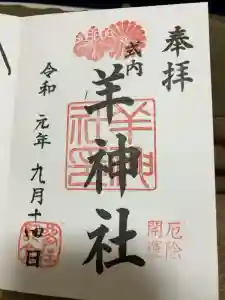 奉拝
式内
羊神社
厄除
開運
令和元年九月十四日